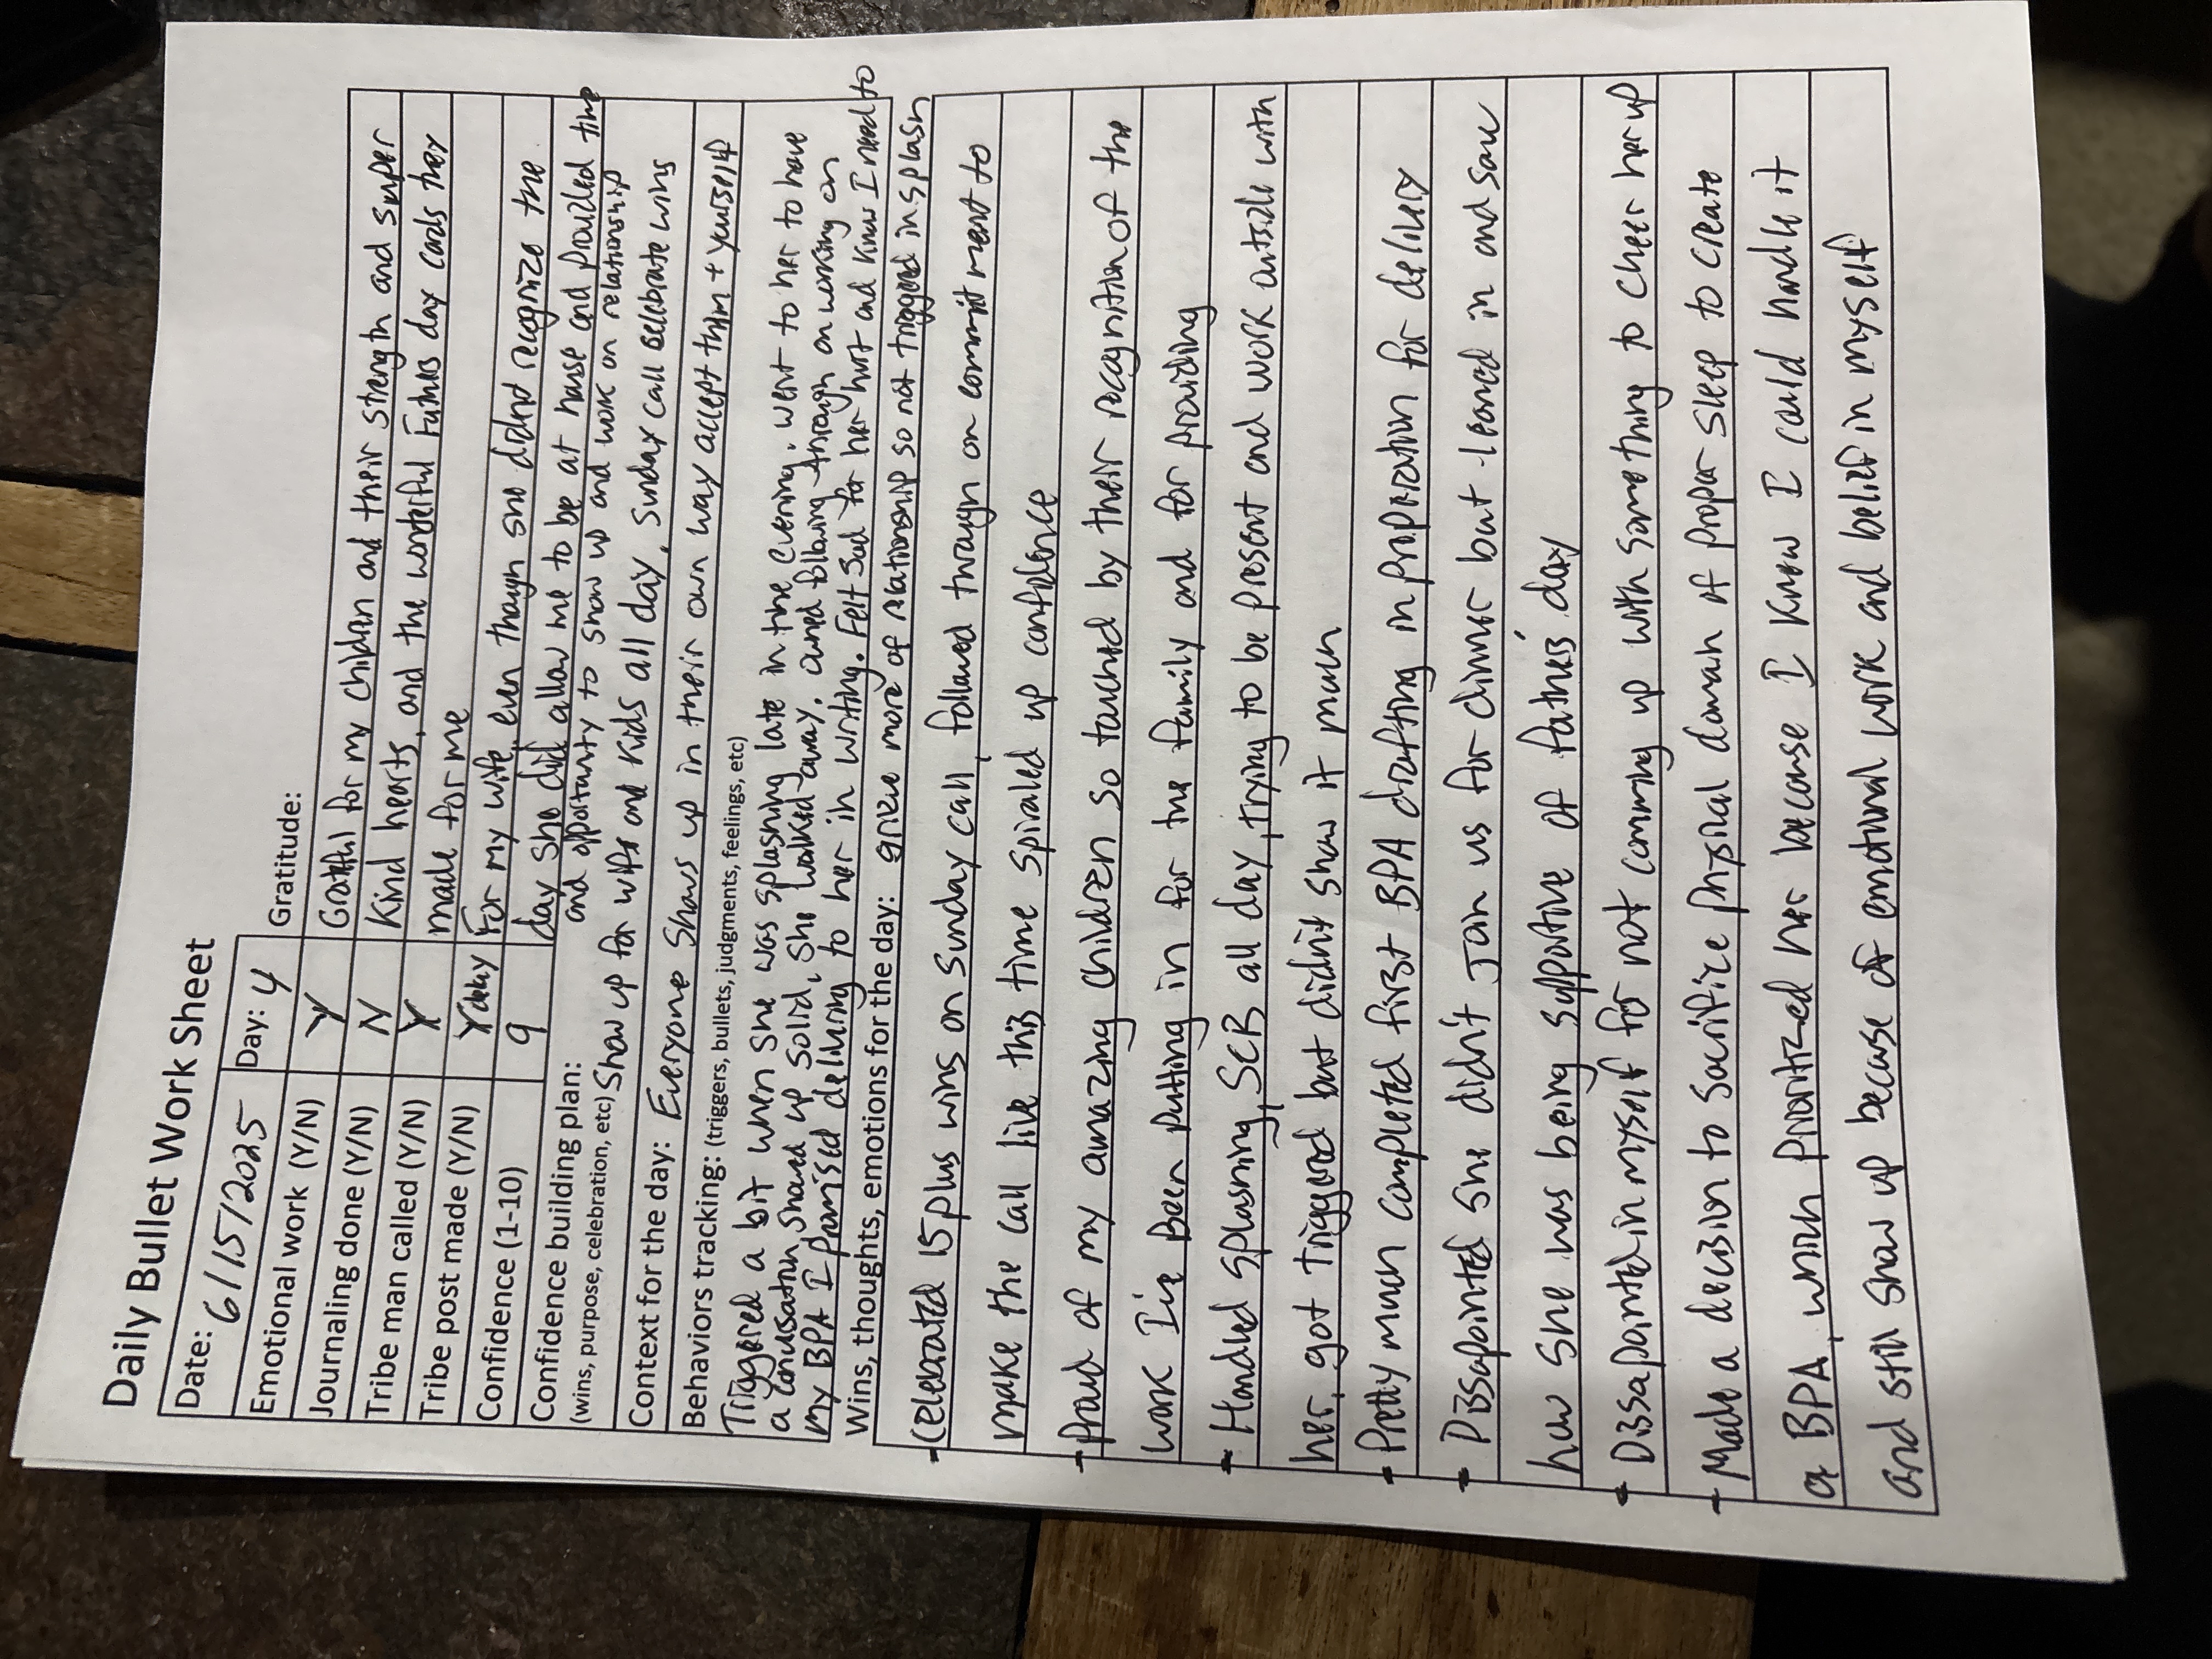 Daily Bullet Work Sheet
Date: 6/15/2025 Day: 4
Gratitude:
Emotional work (Y/N) Y Grateful for my children and their strength and super
Journaling done (Y/N) N Kind hearts, and the wonderful Fathers day cards they
Tribe man called (Y/N) Y made for me
Tribe post made (Y/N) Y For my wife, even though she didnt recognize the
Confidence (1-10) 9 day she did allow me to be at house and provided time
Confidence building plan: and opportunity to show up and work on relationship
(wins, purpose, celebration, etc) Show up for wife and kids all day, Sunday call celebrate wins
Context for the day: Everyone shows up in their own way accept them + yourself
Behaviors tracking: (triggers, bullets, judgments, feelings, etc)
Triggered a bit when she was splashing late in the evening. went to her to have
a conversation, showed up solid, she walked away. owned following through on working on
my BPA I promised delivering to her in writing. Felt sad for her hurt and know I need to
Wins, thoughts, emotions for the day: grieve more of relationship so not triggered in splash
- Celebrated 15 plus wins on Sunday call, followed through on commitment to
make the call live this time spiraled up confidence
- Proud of my amazing children so touched by their recognition of the
work I've Been putting in for the family and for providing
- Handled splashing, SCB all day, trying to be present and work outside with
her, got triggered but didn't show it much
- Pretty much completed first BPA drafting in preparation for delivery
- Dissapointed she didn't Join us for dinner but leaned in and saw
how she was being supportive of father's day
- Dissapointed in myself for not comming up with something to cheer her up
- Made a decision to sacrifice physical domain of proper sleep to create
a BPA, which prioritized her because I know I could handle it
and still show up because of emotional work and belief in myself